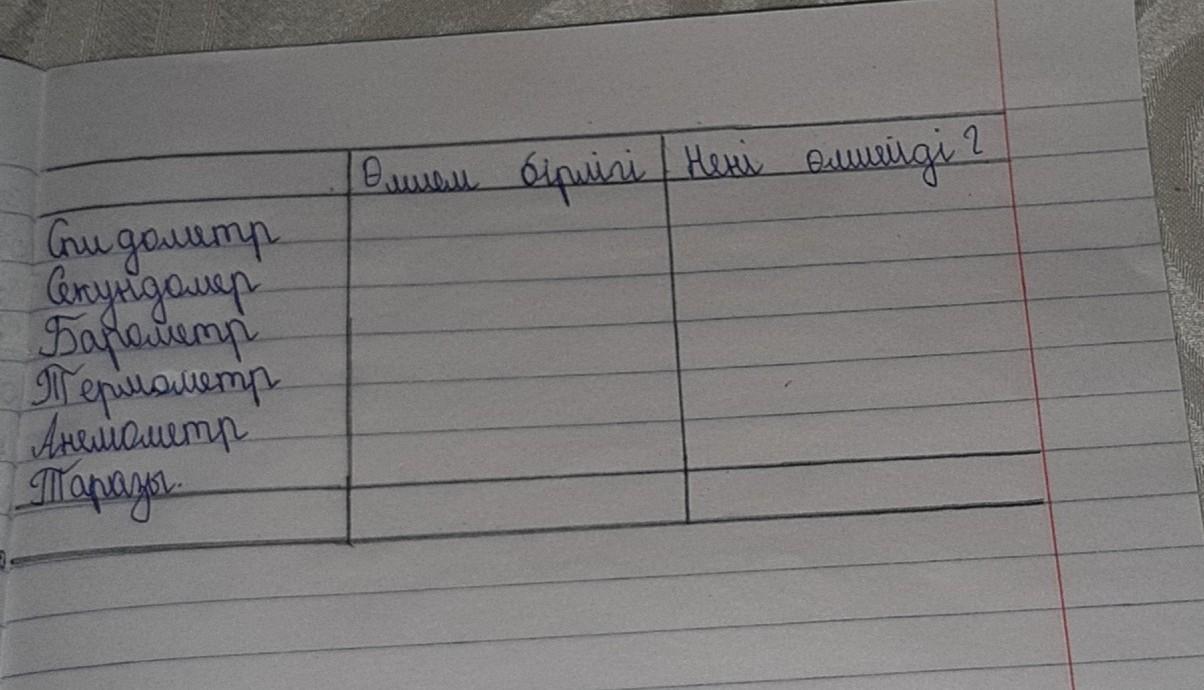 Өлшем бірлігі Нені өлшейді?
Спидометр
Секундомер
Барометр
Термометр
Анемометр
Таразы.